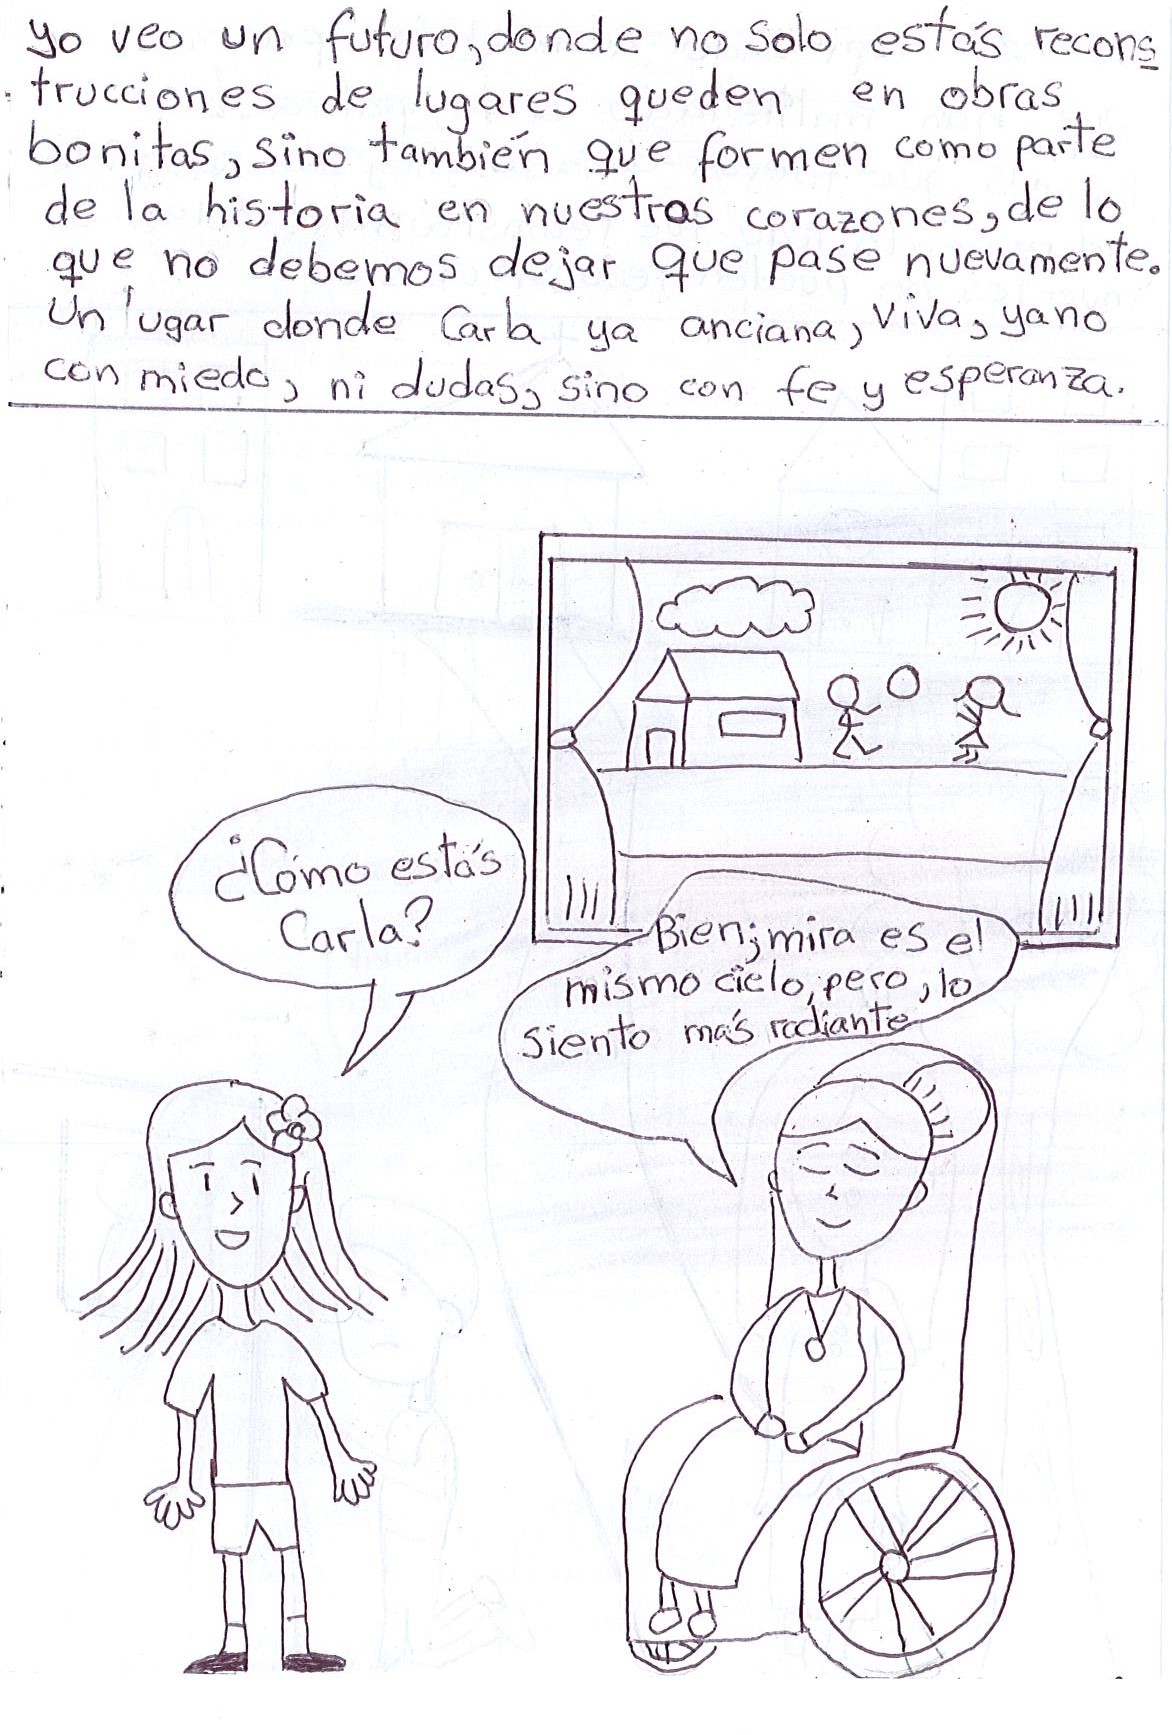 yo veo un futuro, donde no solo estás recons
trucciones de lugares queden en obras
bonitas, sino también que formen como parte
de la historia en nuestros corazones, de lo
que no debemos dejar que pase nuevamente.
Un lugar donde Carla ya anciana, viva, ya no
con miedo, ni dudas, sino con fe y esperanza.
¿Cómo estás
Carla?
Bien; mira es el
mismo cielo, pero, lo
siento más radiante